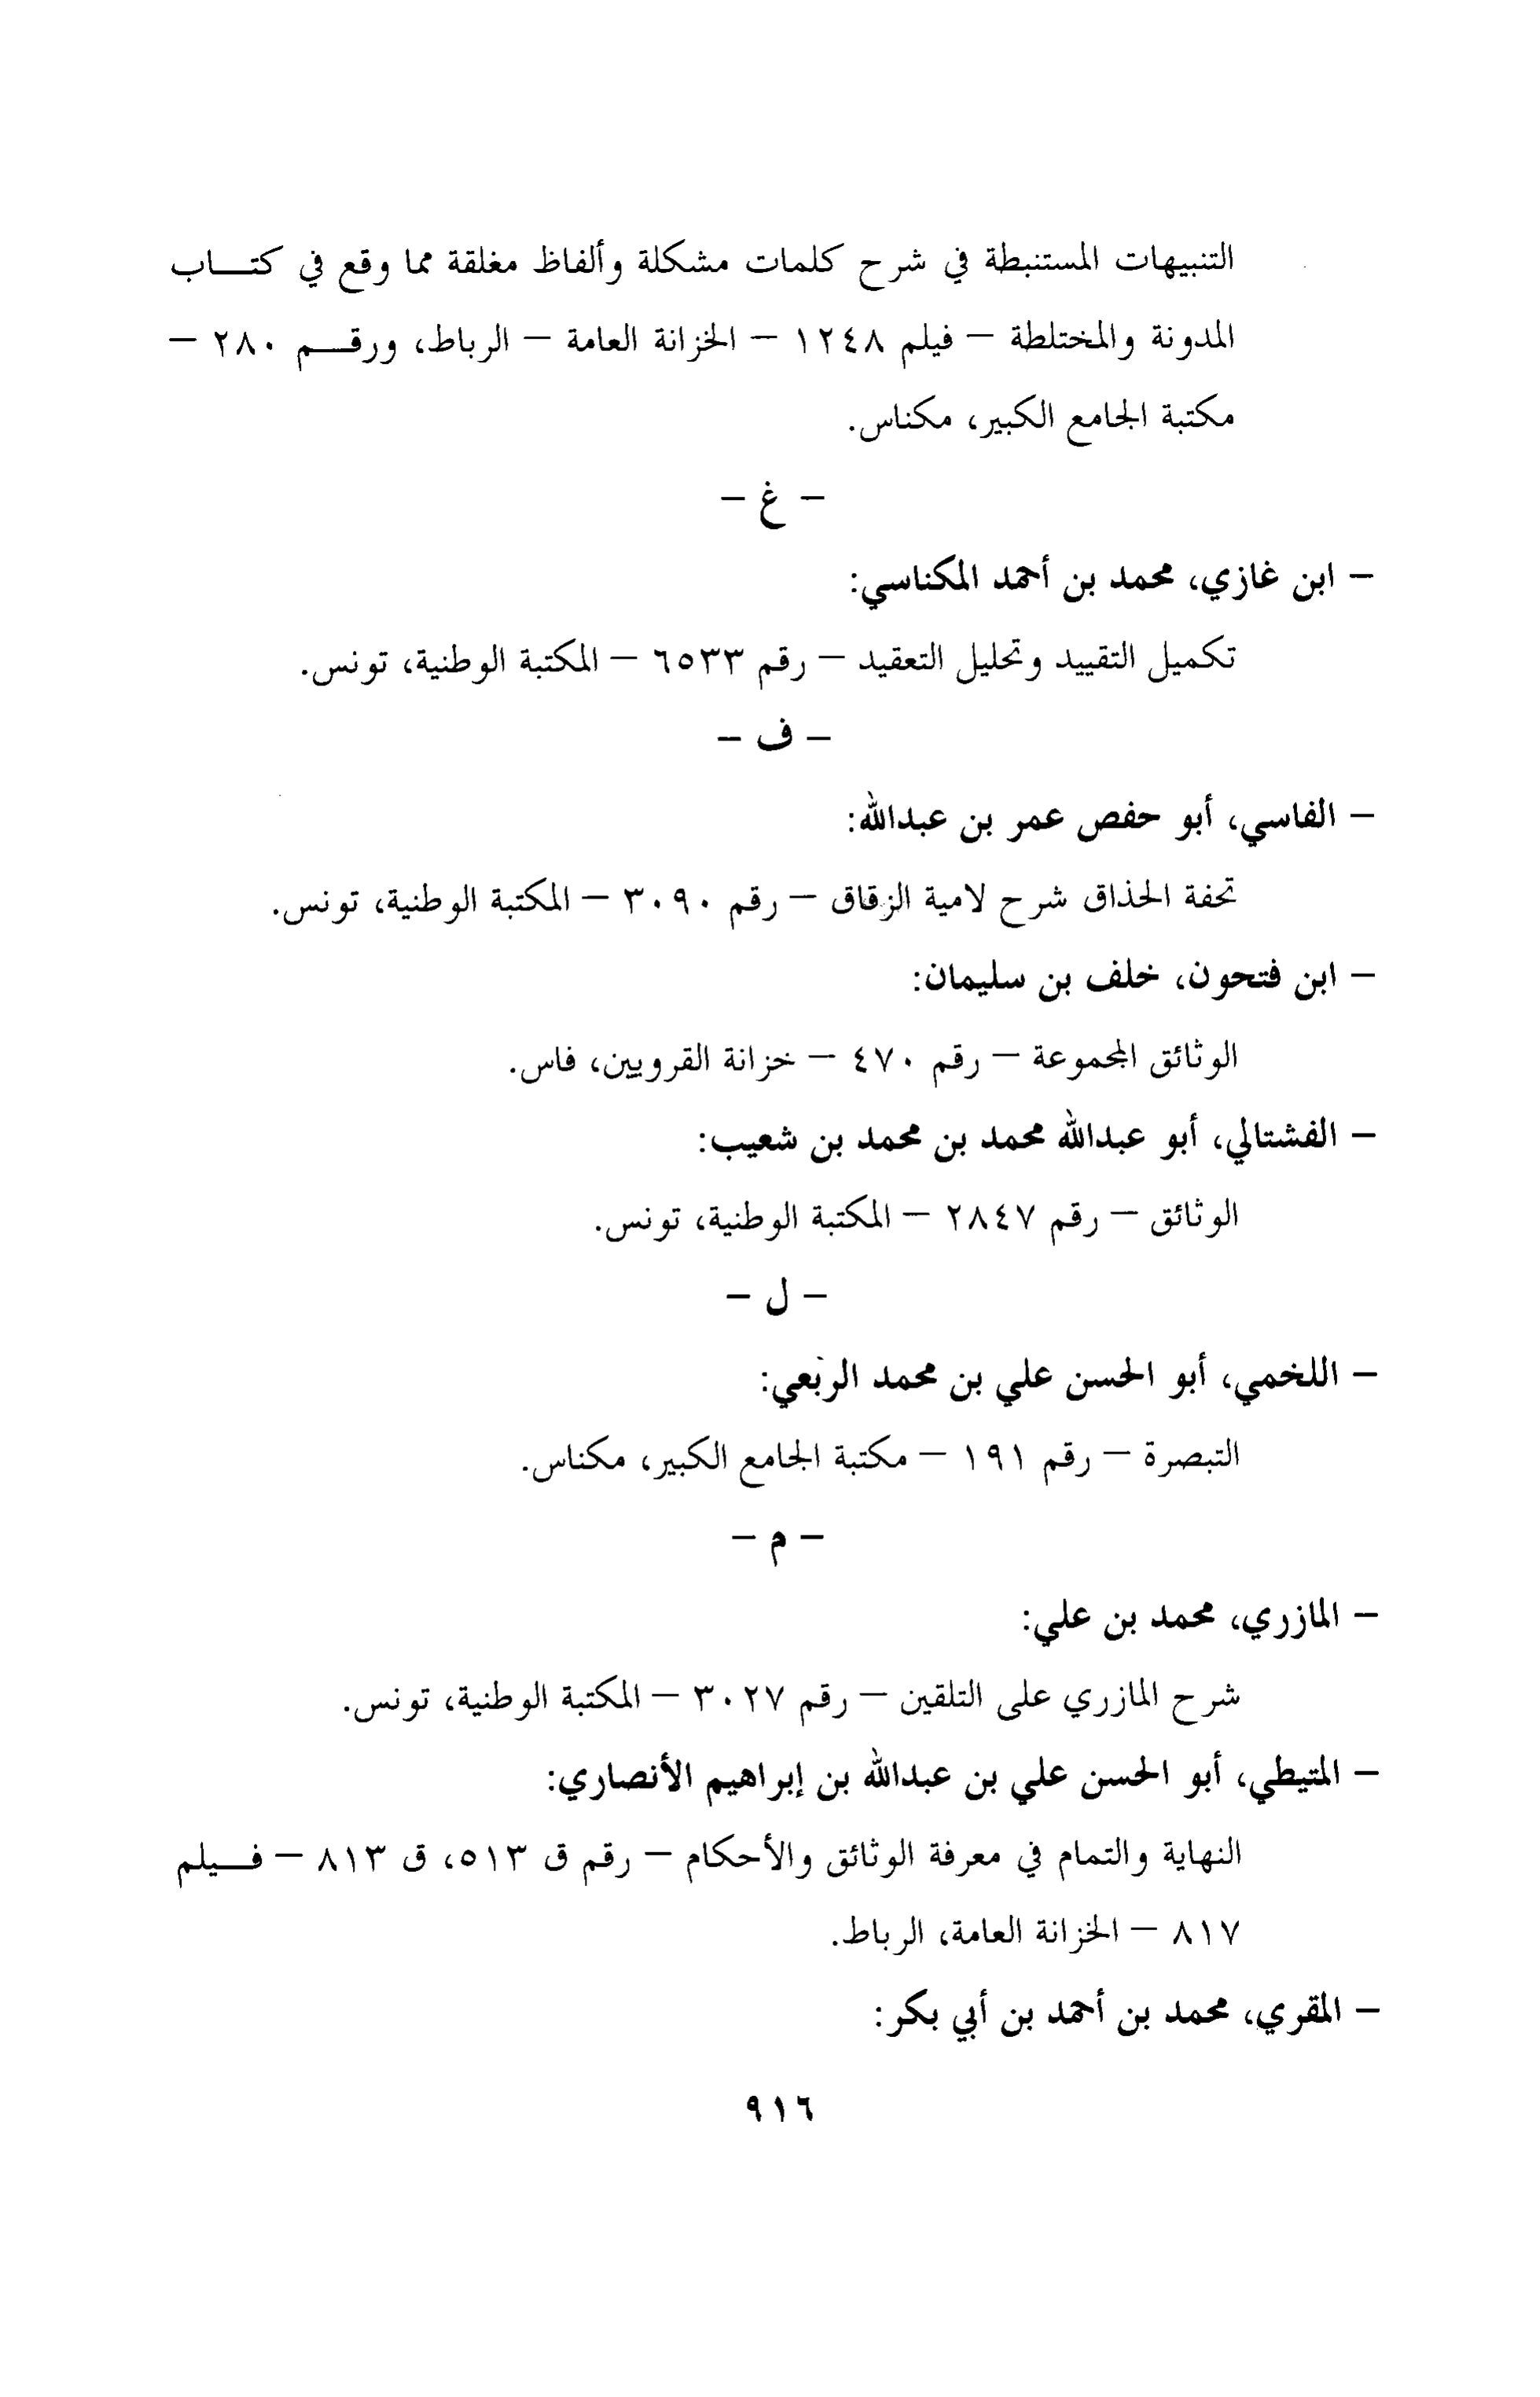 التنبيهات المستنبطة في شرح كلمات مشكلة وألفاظ مغلقة مما وقع في كتـــاب
المدونة والمختلطة – فيلم ١٢٤٨ – الخزانة العامة – الرباط، ورقـــم ٢٨٠ –
مكتبة الجامع الكبير، مكناس.
– غ –
– ابن غازي، محمد بن أحمد المكناسي:
تكميل التقييد وتحليل التعقيد – رقم ٦٥٣٣ – المكتبة الوطنية، تونس.
– ف –
– الفاسي، أبو حفص عمر بن عبدالله:
تحفة الحذاق شرح لامية الزقاق – رقم ٣٠٩٠ – المكتبة الوطنية، تونس.
– ابن فتحون، خلف بن سليمان:
الوثائق المجموعة – رقم ٤٧٠ – خزانة القرويين، فاس.
– الفشتالي، أبو عبدالله محمد بن محمد بن شعيب:
الوثائق – رقم ٢٨٤٧ – المكتبة الوطنية، تونس.
– ل –
– اللخمي، أبو الحسن علي بن محمد الربعي:
التبصرة – رقم ١٩١ – مكتبة الجامع الكبير، مكناس.
– م –
– المازري، محمد بن علي:
شرح المازري على التلقين – رقم ٣٠٢٧ – المكتبة الوطنية، تونس.
– المتيطي، أبو الحسن علي بن عبدالله بن إبراهيم الأنصاري:
النهاية والتمام في معرفة الوثائق والأحكام – رقم ق ٥١٣، ق ٨١٣ – فـــيلم
٨١٧ – الخزانة العامة، الرباط.
– المقري، محمد بن أحمد بن أبي بكر:
٩١٦